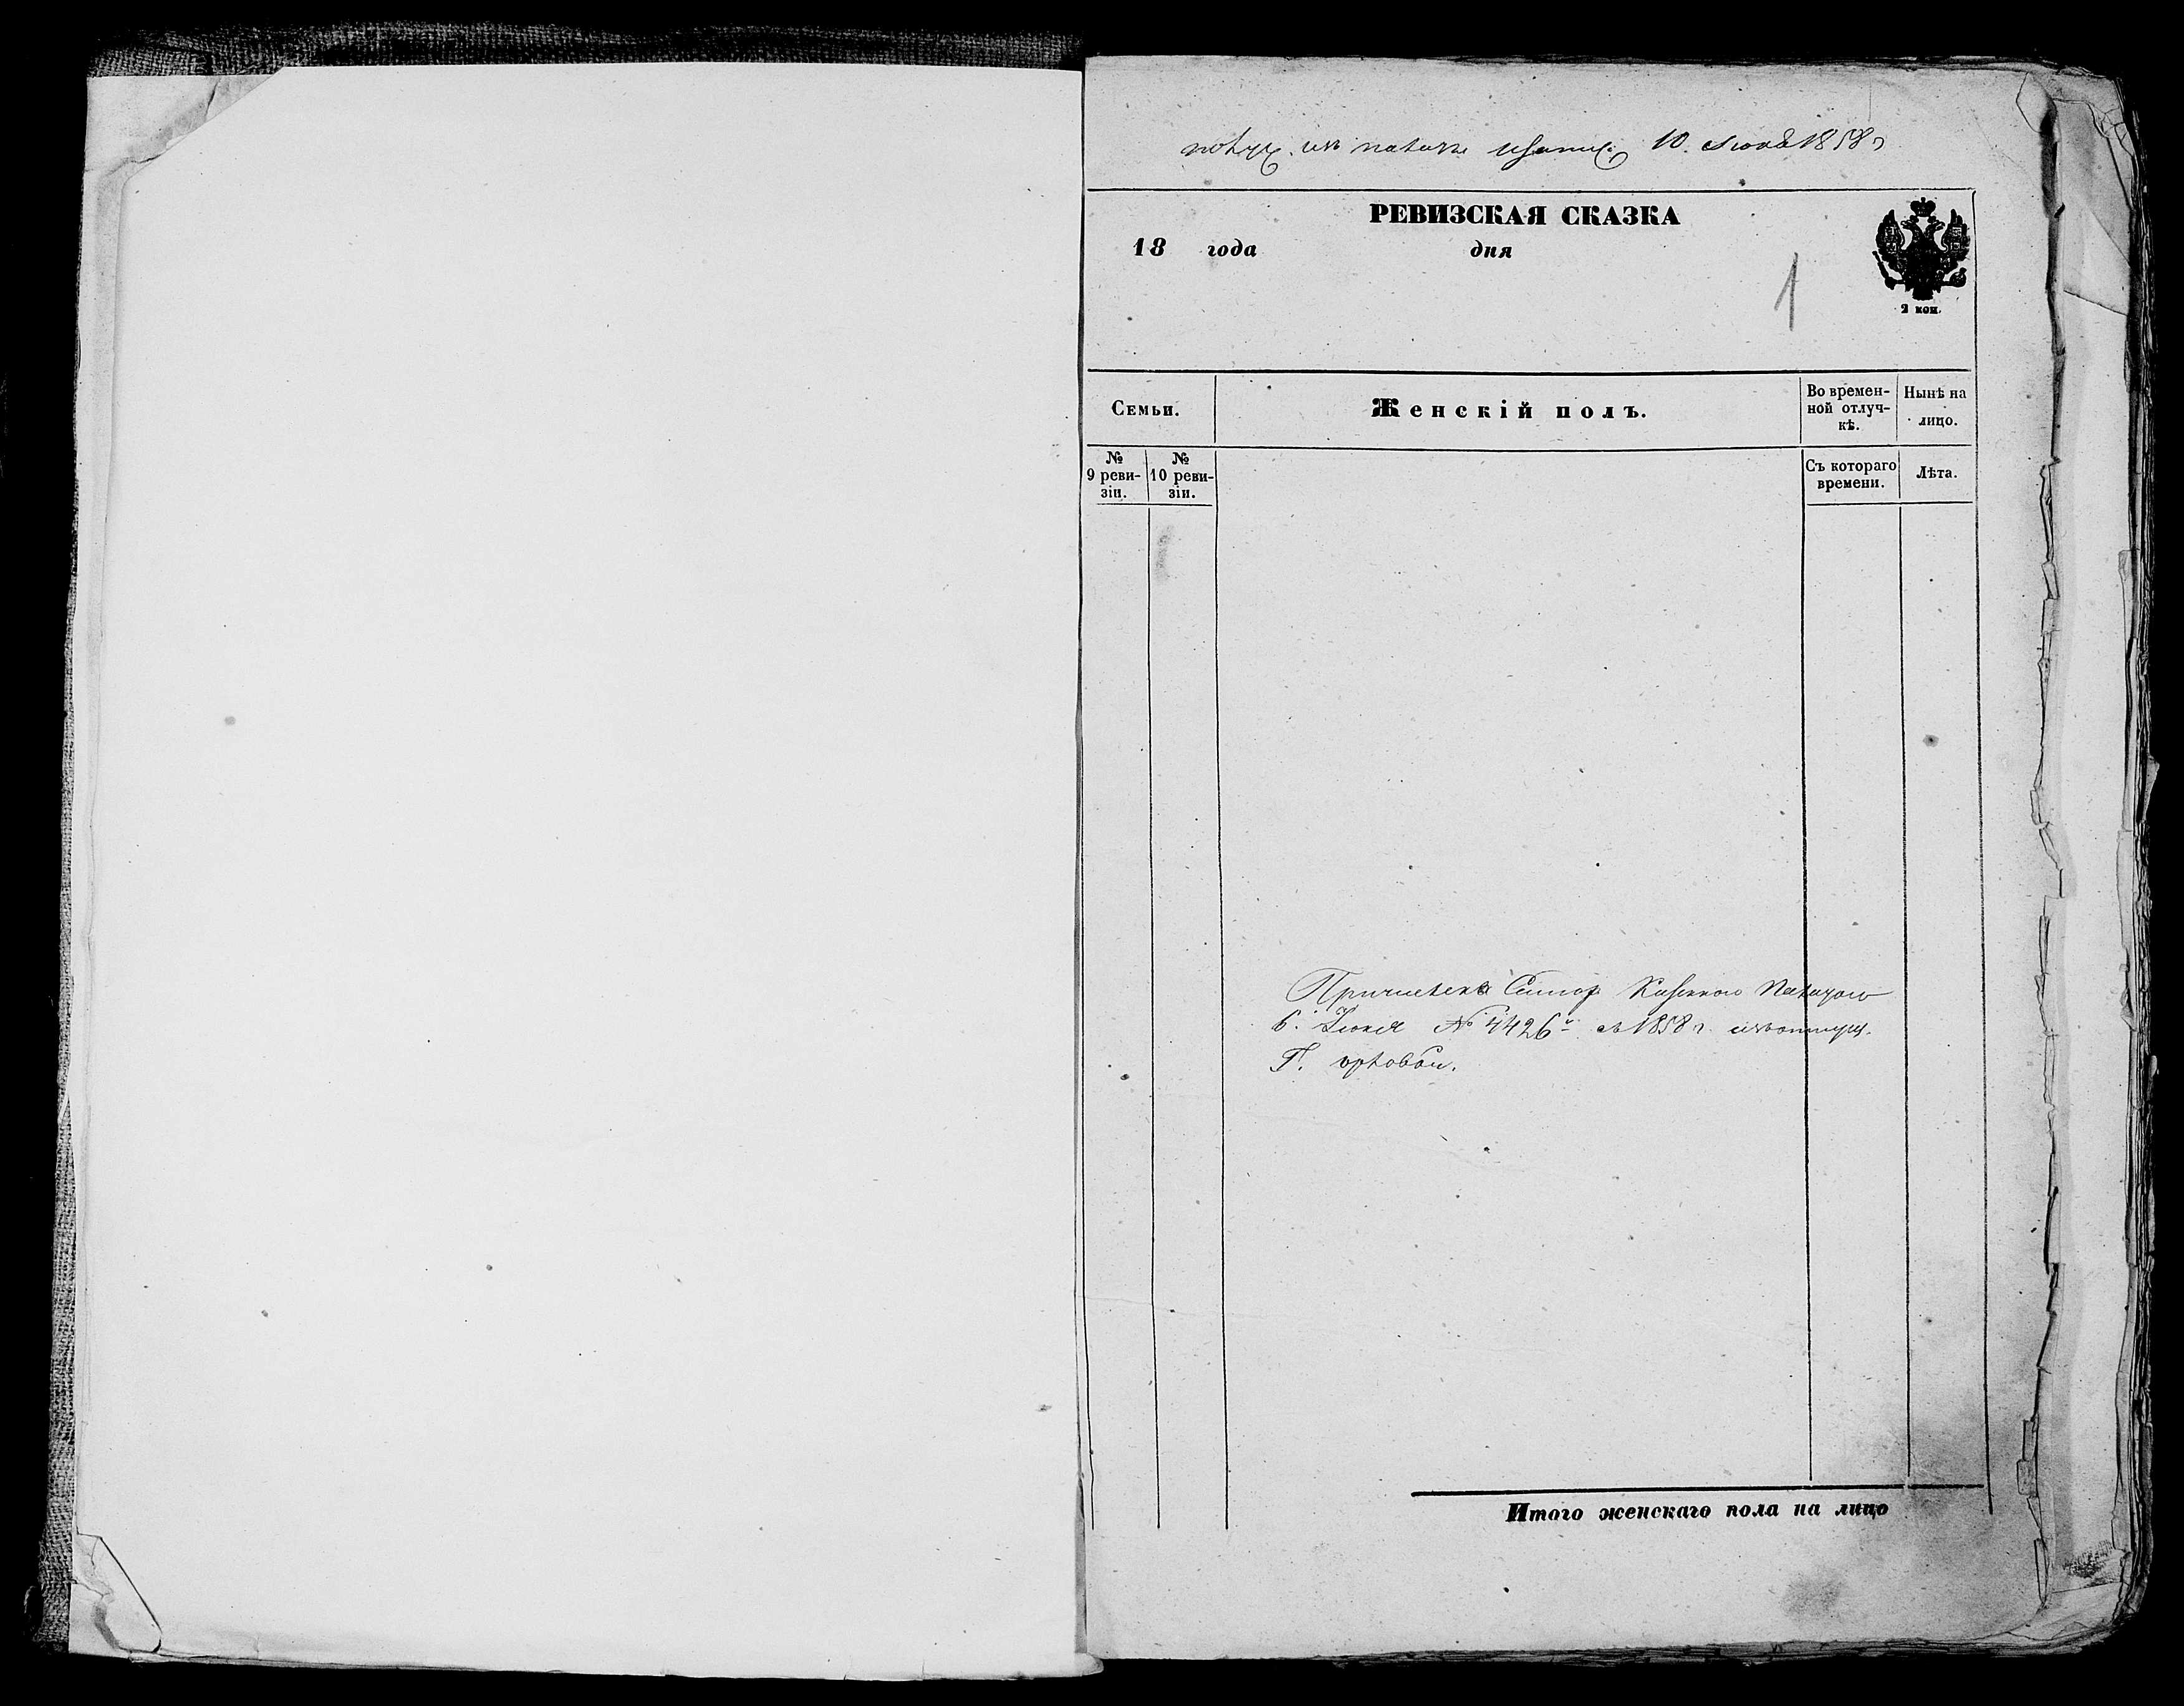 10. Июня 1858 г
РЕВИЗСКАЯ СКАЗКА
18 года дня
1
2 коп.
Семьи.
Женскій полъ.
Во времен-
ной отлуч-
кѣ.
Нынѣ на
лицо.
№
9 реви-
зіи.
№
10 реви-
зіи.
Съ котораго
времени.
Лѣта.
Причислена
6. Іюня № 4426 1858 г.
Г.
Итого женскаго пола на лицо